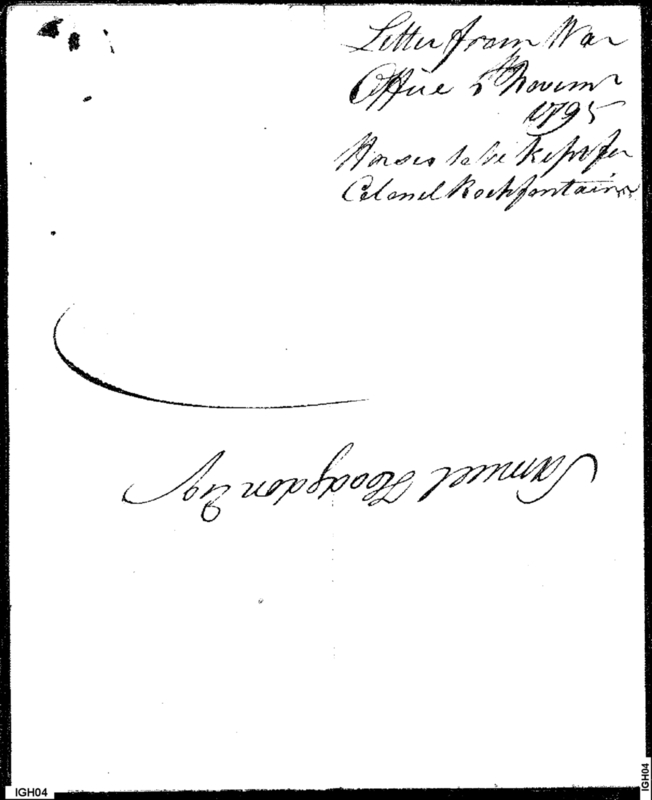 Letter from War
Office 5th Novemr
1795
Horses to be kept for
Colonel Rochfontain
Samuel Hodgdon Esq
IGH04
IGH04